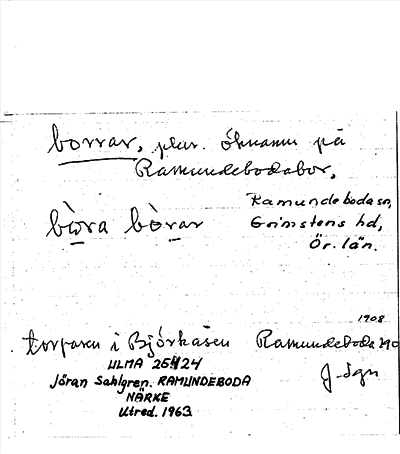 borrar, plur. öknamn på
Ramundebodabor.
Ramundeboda sn,
Grimstens hd,
Ör. län.
bòra bòrar
1908
torparen i Björkåsen Ramundeboda
ULMA 25424
Jöran Sahlgren. RAMUNDEBODA
NÄRKE
Utred. 1963
J. Sgn